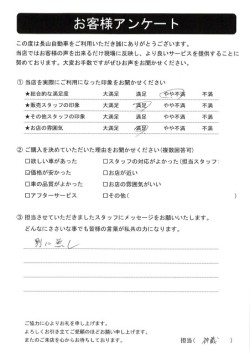 お客様アンケート
この度は長山自動車をご利用いただき誠にありがとうございます。
当店ではお客様の声を出来るだけ現場に反映し、より良いサービスを提供することに
努めております。大変お手数ですがぜひお声をお聞かせください。
① 当店を実際にご利用になった印象をお聞かせください
★総合的な満足度 大満足 満足 やや不満 不満
★販売スタッフの印象 大満足 満足 やや不満 不満
★その他スタッフの印象 大満足 満足 やや不満 不満
★お店の雰囲気 大満足 満足 やや不満 不満
② ご購入を決めていただいた理由をお聞かせください(複数回答可)
□欲しい車があった □スタッフの対応がよかった(担当スタッフ:
□価格が安かった □お店が近い
□車の品質がよかった □お店の雰囲気がいい
□アフターサービス □その他( )
③ 担当させていただきましたスタッフにメッセージをお願いいたします。
どんなにささいな事でも皆様の言葉が私共の力になります。
別に無し
ご協力に心よりお礼を申し上げます。
よろしくお引き立てご愛顧のほどお願い申し上げます。
またのご来店を心からお待ちしております。
担当( )